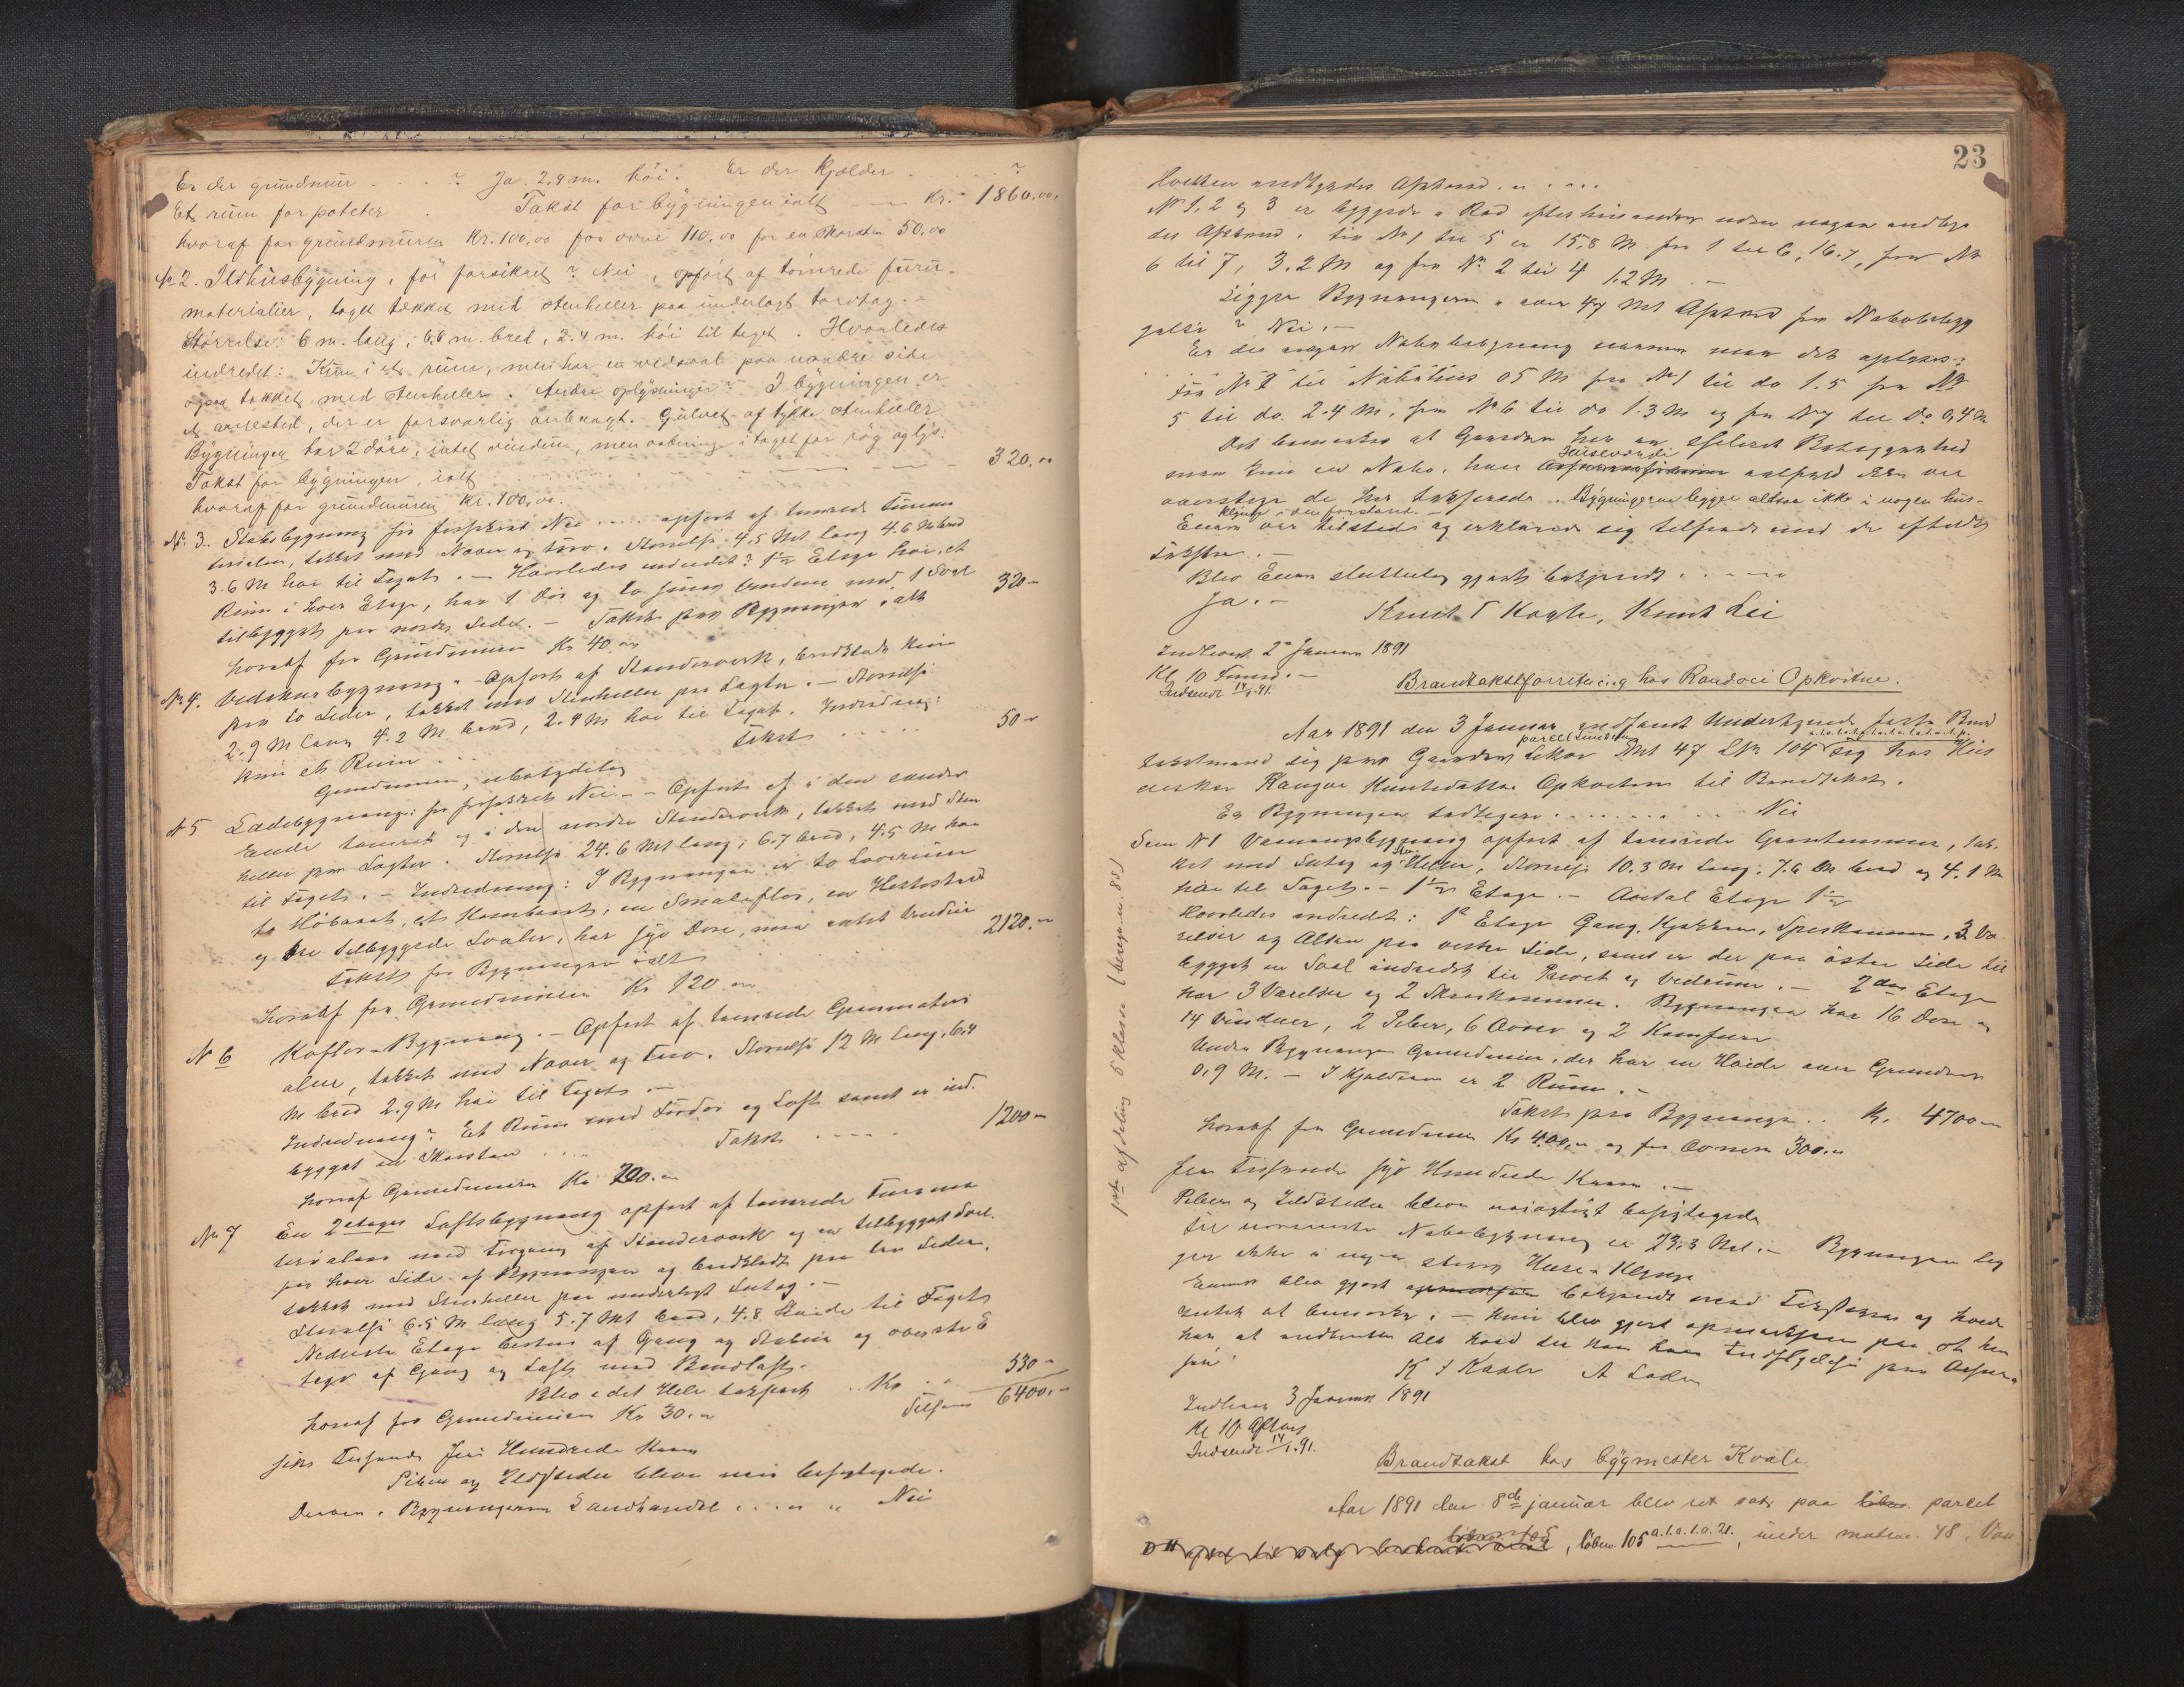 Er der grundmur . . . ? Ja. 2.9 m. høi. Er der kjælder . . . ?
Et rum for poteter . Takst for bygningen ialt — Kr. 1860,00,
hvoraf for grundmuren Kr. 100,00 for ovne 110,00 for en Skorsten 50,00
No 2. Ildhusbygning, før forsikret? Nei, opført af tømrede furu-
materialier, taget tækket med stenheller paa underlagt tørvtag. -
Størrelse: 6 m. lang; 6.6 m. bred, 2.4 m. høi til taget. Hvorledes
indredet: Kun i et rum, men har en vedsval paa nordre side
ogsaa tækket med stenheller. Andre oplysninger? I bygningen er
et arnested, der er forsvarlig anbragt. Gulvet af tykke stenheller
Bygningen har 2 døre, intet vindu, men aabning i taget for røg og lys.
Takst for bygningen, ialt 320,00
hvoraf for grundmuren Kr. 100,00.
No. 3. Stabsbygning før forsikret Nei .... opført af tømrede tømma
terialer, tækket med Næver og tørv. Størrelse 4.5 Met lang 4.6 M bred
3.6 M høi til Taget. — Hvorledes indredet? 1½ Etage høi, et
Rum i hver Etage, har 1 Dør og to smaa Vinduer med 1 Sval
tilbygget paa nordre Side. — Takst paa Bygningen ialt 320 -
hvoraf for Grundmuren Kr 40,00
No 4. Vedskurbygning. - Opført af Standerverk, bordklædt kun
paa to Sider, tækket med Stenheller paa Lagter. — Størrelse
2.9 M lang 4.2 M bred, 2.4 M høi til Taget. Indredning:
kun et Rum . . . Takst . . . . . 50 -
Grundmuren, ubetydelig
No 5 Ladebygning: før forsikret Nei — Opført af i den søndre
Ende tømret og i den nordre Standerverk, tækket med Sten
heller paa Lagter. Størrelse 24.6 Met lang, 6.7 bred, 4.5 M høi
til Taget. — Indredning: I Bygningen er to Laaverum
to Høbaaat, et Kornbaat, en Smaleflor, en Hestestald
og tre tilbyggede Svaler, har syv Døre, men intet Vindue
Takst for Bygningen ialt 2120,-
hvoraf for Grundmuren Kr 120,-
No 6 Koflor-Bygning. — Opført af tømrede Granmateri
aler, tækket med Næver og Tørv. Størrelse 12 M lang, 6.4
M bred 2.9 M høi til Taget. —
Indredning? Et Rum med Fordør og Loft samt er ind.
bygget en Skorsten . . . . . Takst . . . . . 1200 -
hvoraf Grundmuren Kr 200,-
No 7 En 2 etages Loftsbygning opført af tømrede Furuma
terialer med Tilgang af Standerverk og en tilbygget Sval
paa hver Side af Bygningen og bordklædt paa tre Sider,
tækket med Stenheller paa underlagt Sutag. —
Størrelse 6.5 M lang 5.7 Met bred, 4.8 Høide til Taget
Nederste Etage bestaar af Gang og Stabur og øverste E
tage af Gang og Loft med Bordloft.
Blev i det Hele takseret .. Kr . . 530 -
hvoraf for Grundmuren Kr 30,- Tilsam 6400,-
sex Tusende fire Hundrede Kroner
Piben og Ildstedet bleve nøie besigtigede.
Drives i Bygningerne Landhandel . . . . Nei
23
Hvilken indbyrdes Afstand . . . . . .
No 1, 2 og 3 er byggede i Rad efter hinanden uden nogen indbyr
des Afstand, fra No 1 til 5 er 15,8 M fra 1 til 6, 16.7, fra No
6 til 7, 3.2 M og fra No 2 til 4 1.2 M . —
Ligger Bygningerne i over 47 Met Afstand fra Nabobebyg
gelse? Nei. —
Er der nogen Nabobebygning nærmere maa det oplyses:
Fra No 7 til Nabohus 05 M fra No 1 til do 1.5 fra No
5 til do. 2.4 M, fra No 6 til do 1.3 M og fra No 7 til Do 0,4 M
Det bemærkes at Gaarden har en isoleret Beliggenhed
men kun en Nabo, hvis Husværdi aalfred ikke vil
overstige de her takserede. Bygningerne ligger altsaa ikke i nogen hus-
klynge i den forstand. —
Eieren var tilstede og erklærede sig tilfreds med de afholdte
Takster. —
Blev Eieren skriftlig gjort bekjendt . . — —
Ja. —
Knut T Kaale, Knut Lei
Indleveret 2 Januar 1891
Kl. 10 Formd. —
Indsendt 14/1.91.
Brandtakstforretning hos Randvei Opkvitne.
Aar 1891 den 3 Januar indfandt Undertegnede faste Brand
parcel
takstmænd sig paa Gaarden Lekve Mt 47 LNr 104 sig hos Hus
eierske Rangve Knutsdatter Opkvitne til Brandtakst.
Er Bygningen tidligere . . . . . . . . . . Nei
Som No 1 Vaaningsbygning opført af tømrede Grantømmer, tæk-
ket med Sutag og Sten Heller, Størrelse 10.3 M lang, 7.6 M bred og 4.1 M
høi til Taget. — 1½ Etage. — Antal Etage 1½
Hvorledes indredet: 1ste Etage Gang, Kjøkken, Speskammer, 3 Væ
relser og Altan paa vestre Side, samt er der paa østre Side til
bygget en Sval indredet til Privet og Vedrum. — 2den Etage
har 3 Værelser og 2 Skraakammere. Bygningen har 16 Døre og
14 Vinduer, 2 Piber, 6 Ovner og 2 Komfurer
Under Bygningen Grundmur, der har en Høide over Grunden
0,9 M. — I Kjælderen er 2 Rum. —
Takst paa Bygningen .. Kr. 4700 -
hvoraf for Grundmuren Kr 400,- og for Ovnene 300,-
fire Tusende syv Hundrede Kroner. —
Piben og Ildsteder bleve nøiagtigt besigtigede
Til nærmeste Nabobygning er 23,3 Met. — Bygningen lig
ger ikke i nogen større Huse-Klynge
Eieren blev gjort bekjendt med Taksterne og havde
Intet at bemærke. — Hun blev gjort opmærksom paa at hun
har at indbetale Alt hvad
K T Kaale A Lade
Indleveret 3 Januar 1891
Kl 10 Aftens
Indsendt 14/1.91.
1ste afdeling 6 klasse (beregn. 85)
Brandtakst hos bygmester Kvale
Aar 1891 den 8de januar blev ret sat paa parcel
, løbenr 105 a.1.a.1.a.21., under matrnr. 48. Van